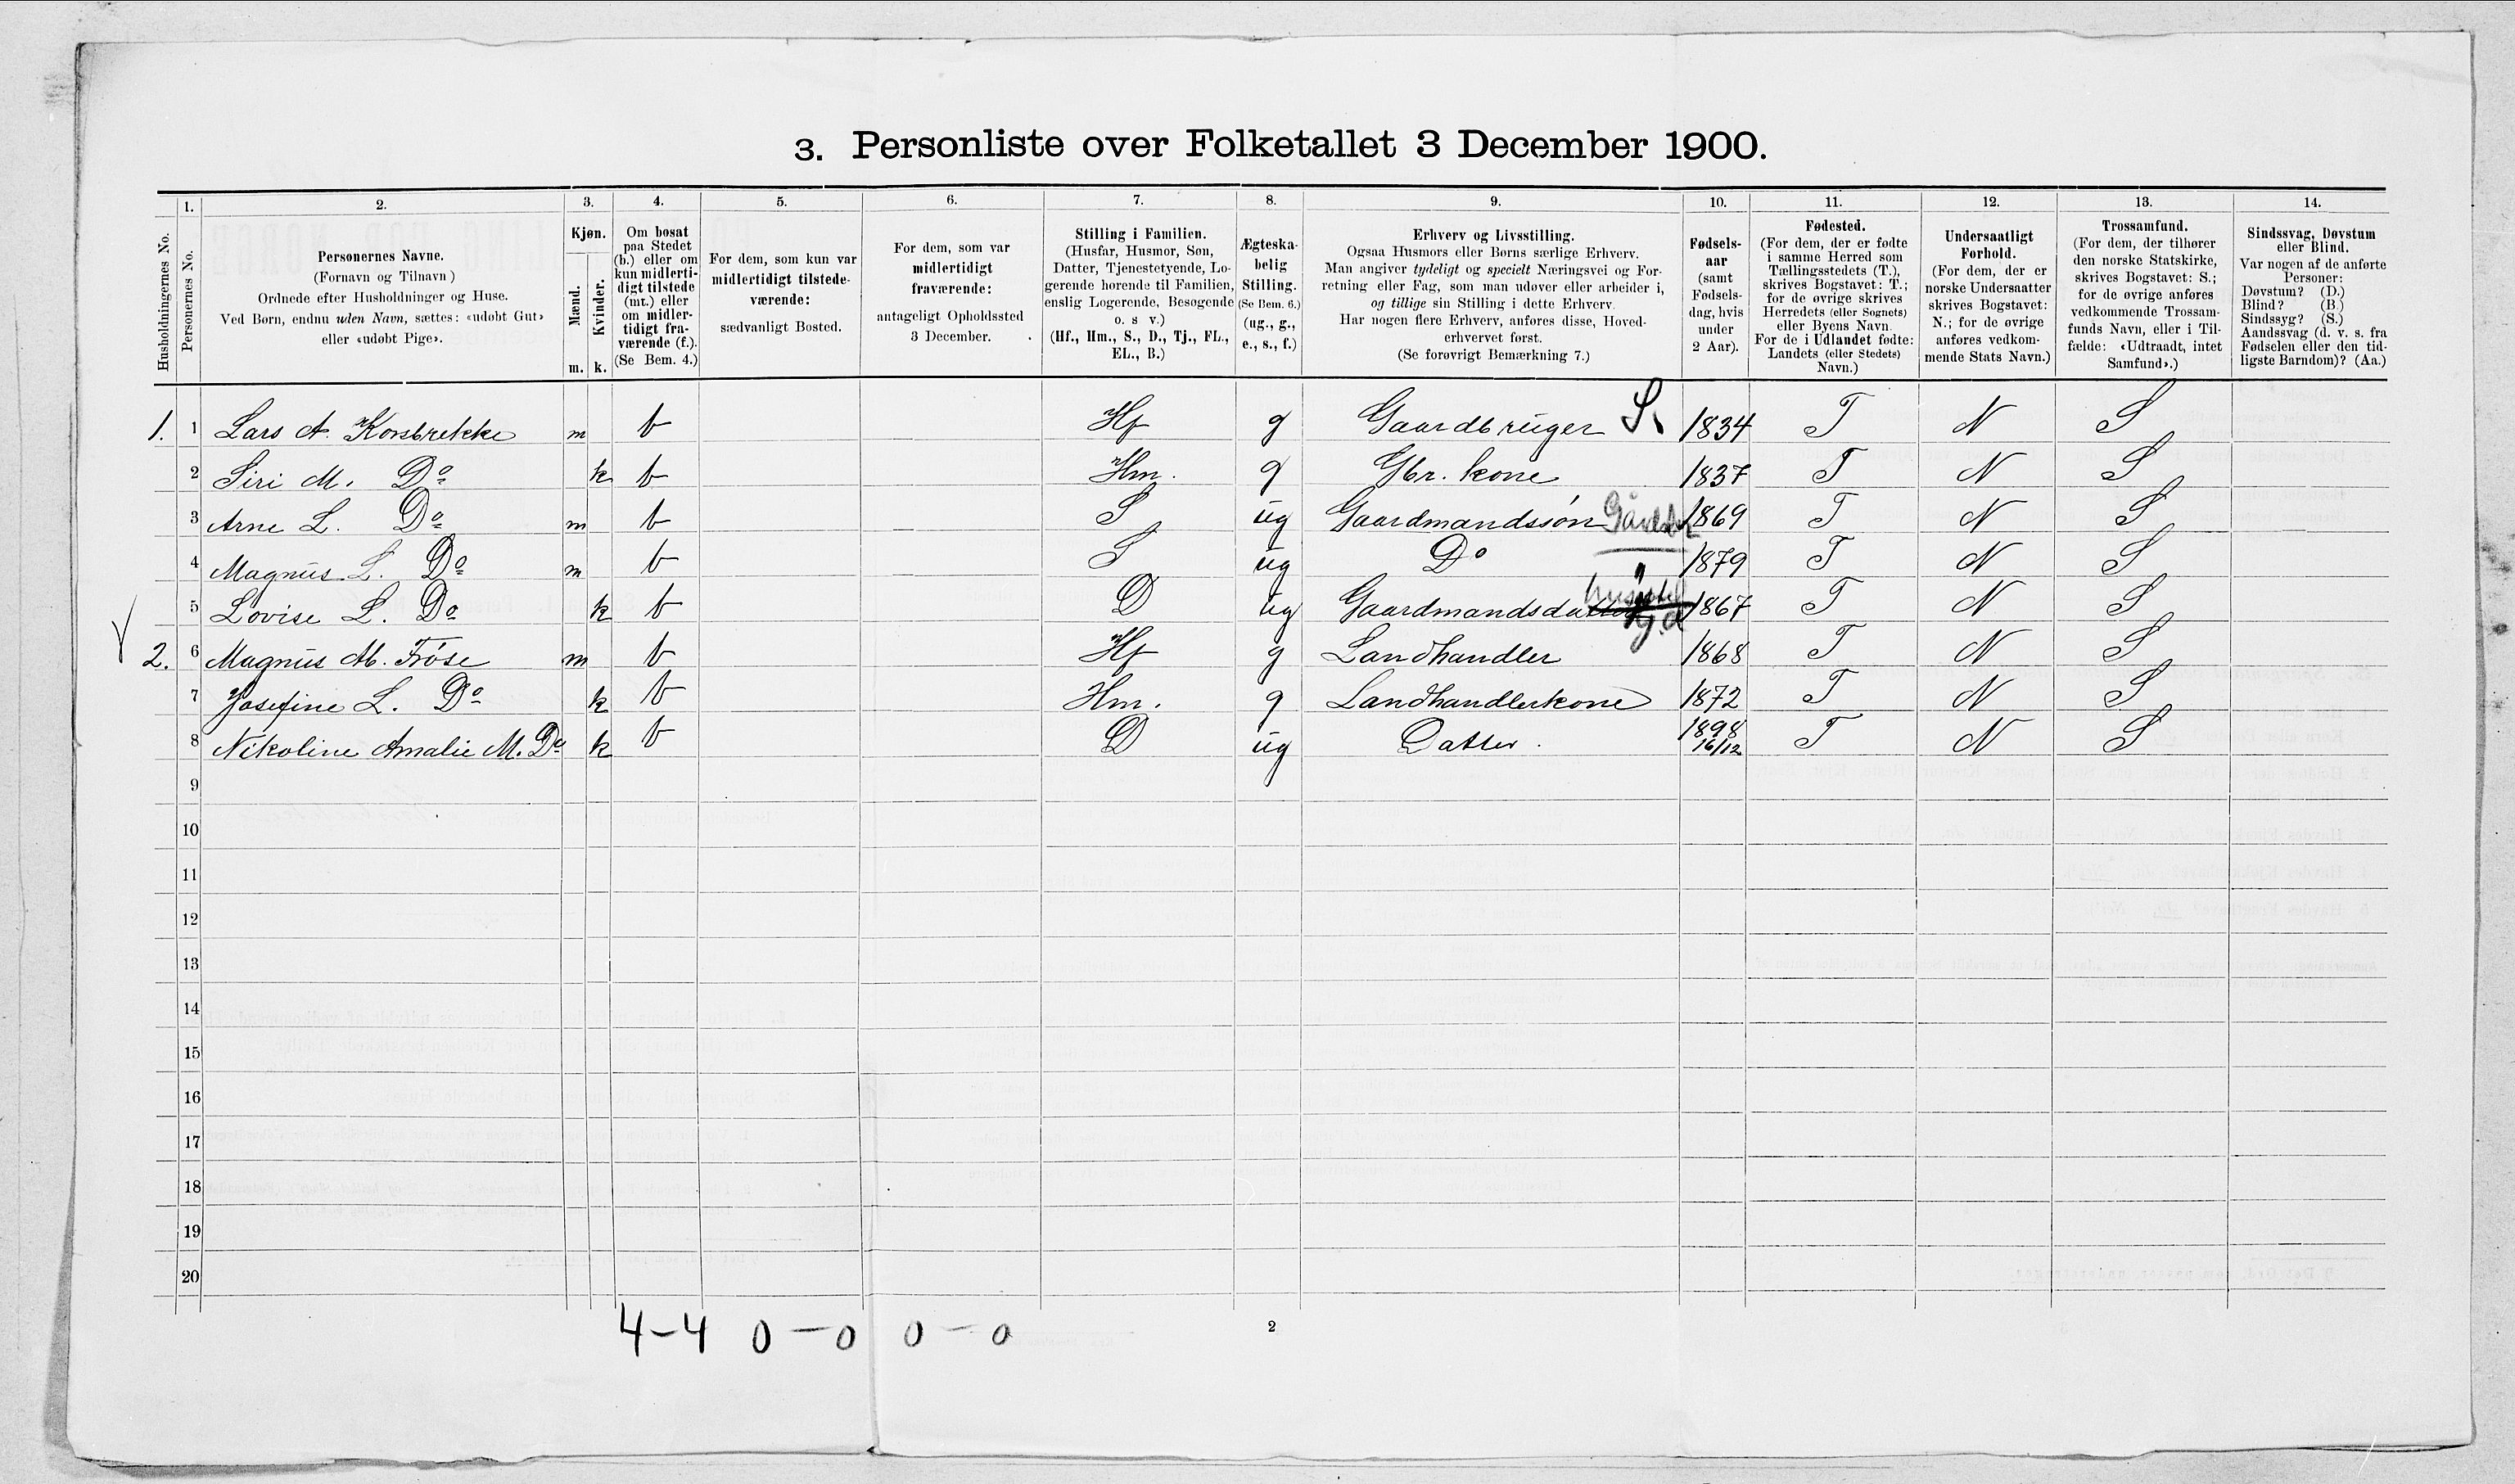 3. Personliste over Folketallet 3 December 1900.
1. 2. 3. 4. 5. 6. 7. 8. 9. 10. 11. 12. 13. 14.
Husholdningernes No.
Personernes No.
Personernes Navne.
(Fornavn og Tilnavn)
Ordnede efter Husholdninger og Huse.
Ved Børn, endnu uden Navn, sættes: «udøbt Gut»
eller «udøbt Pige».
Kjøn.
Mænd.
Kvinder.
m. k.
Om bosat
paa Stedet
(b.) eller om
kun midlerti-
digt tilstede
(mt.) eller
om midler-
tidigt fra-
værende (f.).
(Se Bem. 4.)
For dem, som kun var
midlertidigt tilstede-
værende:
sædvanligt Bosted.
For dem, som var
midlertidigt
fraværende:
antageligt Opholdssted
3 December.
Stilling i Familien.
(Husfar, Husmor, Søn,
Datter, Tjenestetyende, Lo-
gerende hørende til Familien,
enslig Logerende, Besøgende
o. s v.)
(Hf., Hm., S., D., Tj., FL.,
EL., B.)
Ægteska-
belig
Stilling.
(Se Bem. 6.)
(ug., g.,
e., s., f.)
Erhverv og Livsstilling.
Ogsaa Husmors eller Børns særlige Erhverv.
Man angiver tydeligt og specielt Næringsvei og For-
retning eller Fag, som man udøver eller arbeider i,
og tillige sin Stilling i dette Erhverv.
Har nogen flere Erhverv, anføres disse, Hoved-
erhvervet først.
(Se forøvrigt Bemærkning 7.)
Fødsels-
aar
(samt
Fødsels-
dag, hvis
under
2 Aar).
Fødested.
(For dem, der er fødte
i samme Herred som
Tællingsstedets (T.),
skrives Bogstavet: T.;
for de øvrige skrives
Herredets (eller Sognets)
eller Byens Navn.
For de i Udlandet fødte:
Landets (eller Stedets)
Navn.)
Undersaatligt
Forhold.
(For dem, der er
norske Undersaatter
skrives Bogstavet:
N.; for de øvrige
anføres vedkom-
mende Stats Navn.)
Trossamfund.
(For dem, der tilhører
den norske Statskirke,
skrives Bogstavet: S.;
for de øvrige anføres
vedkommende Trossam-
funds Navn, eller i Til-
fælde: «Udtraadt, intet
Samfund».)
Sindssvag, Døvstum
eller Blind.
Var nogen af de anførte
Personer:
Døvstum? (D.)
Blind? (B.)
Sindssyg? (S.)
Aandssvag (d. v. s. fra
Fødselen eller den tid-
ligste Barndom)? (Aa.)
1. 1 Lars A. Korsbrekke m b Hf g Gaardbruger S. 1834 T N S
2 Siri M. Do k b Hm. g Gbr. kone 1837 T N S
3 Arne L. Do m b S ug Gaardmandssøn 1869 T N S
4 Magnus L. Do m b S ug Do " 1879 T N S
5 Lovise L. Do k b D ug Gaardmandsdatter 1867 T N S
2. 6 Magnus M. Frøse m b Hf g Landhandler 1868 T N S
7 Josefine L. Do k b Hm. g Landhandlerkone 1872 T N S
8 Nikoline Amalie M. Do k b D ug Datter. 1898 16/12 T N S
9
10
11
12
13
14
15
16
17
18
19
20
4-4 0-0 0-0
2